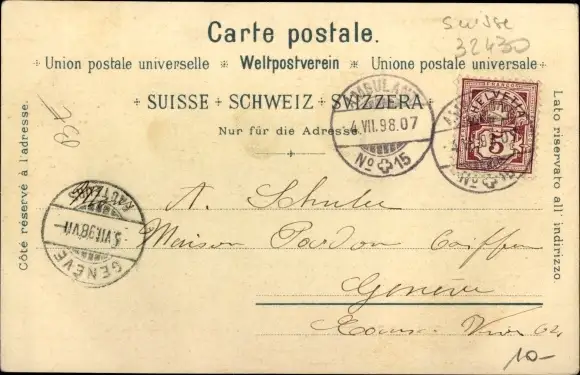 Suisse
32430
Carte postale.
Union postale universelle Weltpostverein Unione postale universale
SUISSE + SCHWEIZ + SVIZZERA
Nur für die Adresse.
Côté réservé à l'adresse.
Lato riservato all' indirizzo.
AMBULANT
4.VII.98.07
No 15
FRANCO
HELVETIA
5
No 15
5.VII.98.VII
GENÈVE
A. Schuler
Maison Pardon Coiffeur
Genève
10-